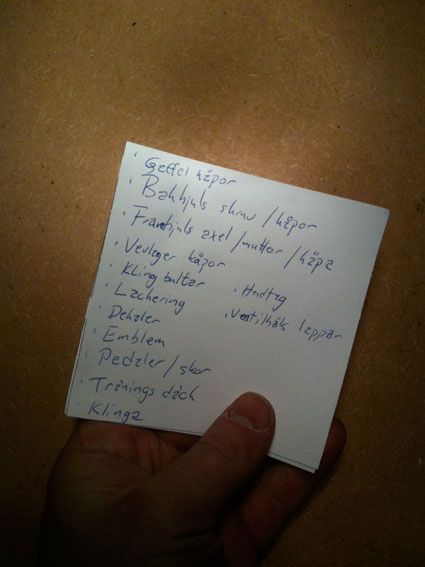 · Gaffel kåpor
· Bakhjuls skruv/kåpor
· Framhjuls axel/muttor/kåpa
· Vevlager kåpor
· Kling bultar
· Lackering
· Dekaler
· Emblem
· Pedaler/skor
· Tränings däck
· Klinga
· Handtag
· Ventilhåls lappar